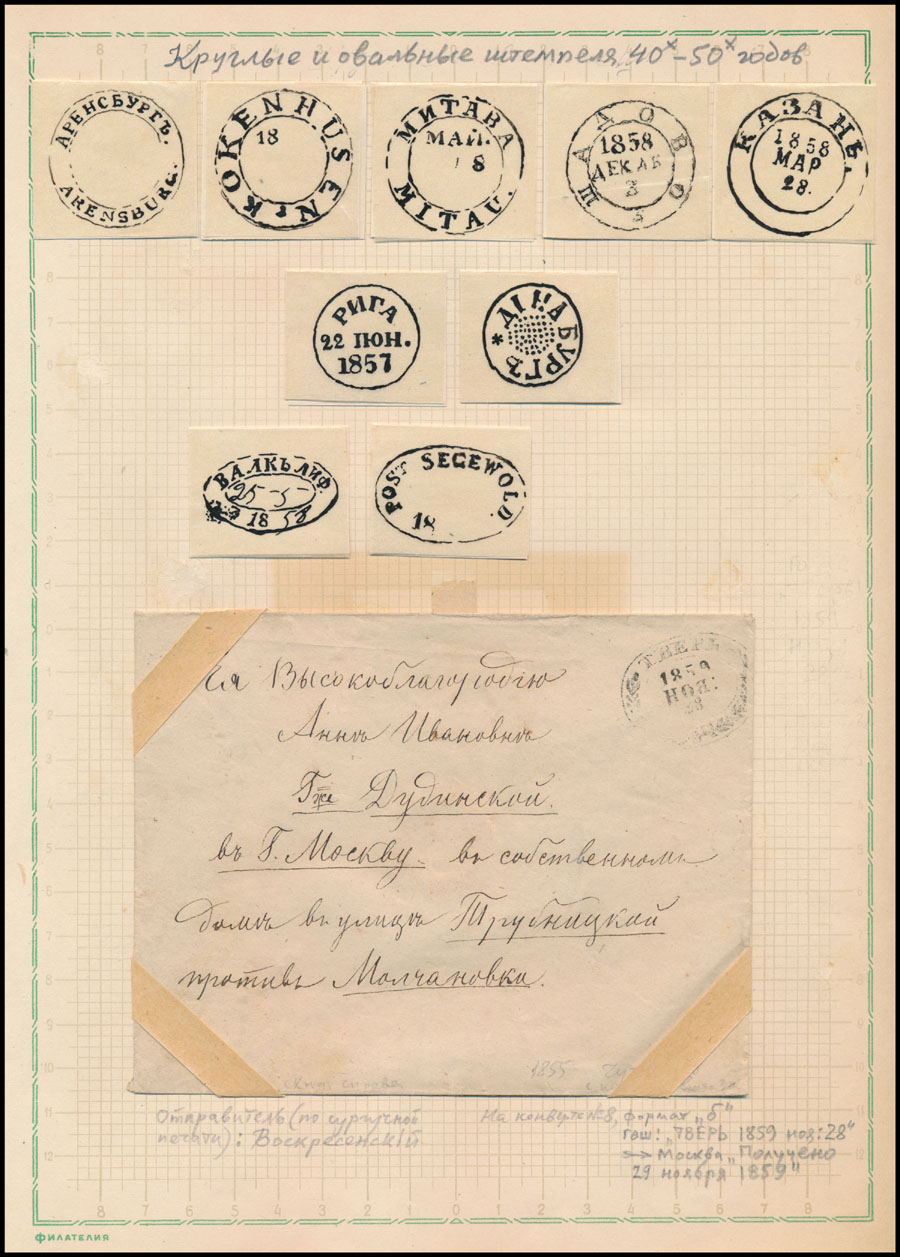 Круглые и овальные штемпеля 40х – 50х годов
АРЕНСБУРГЪ.
ARENSBURG.
KOKENHUSEN
18
МИТАВА
МАЙ.
8
MITAU.
ШАДОВО
1858
ДЕКАБ
3
3
КАЗАНЬ.
1858
МАР
28.
РИГА
22 ІЮН.
1857
ДІНАБУРГЪ *
ВАЛКЪ ЛИФ.
25-5-
18 58
POST SEGEWOLD.
18
ТВЕРЬ
1859
НОЯ:
28
Ея Высокоблагородію
Аннѣ Ивановнѣ
Гжѣ Дудинской.
въ Г. Москву. въ собственномъ
домѣ въ улицѣ Трубницкой
противъ Молчановки.
1855
Отправитель (по сургучной
печати): Воскресенскій
На конверте №8, формат „б"
гош: „ТВЕРЬ 1859 ноя: 28"
→ Москва „Получено
29 ноября 1859"
ФИЛАТЕЛИЯ